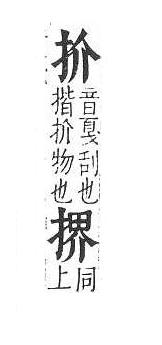 扴
音戛刮也
揩扴物也
𢰿
同
上